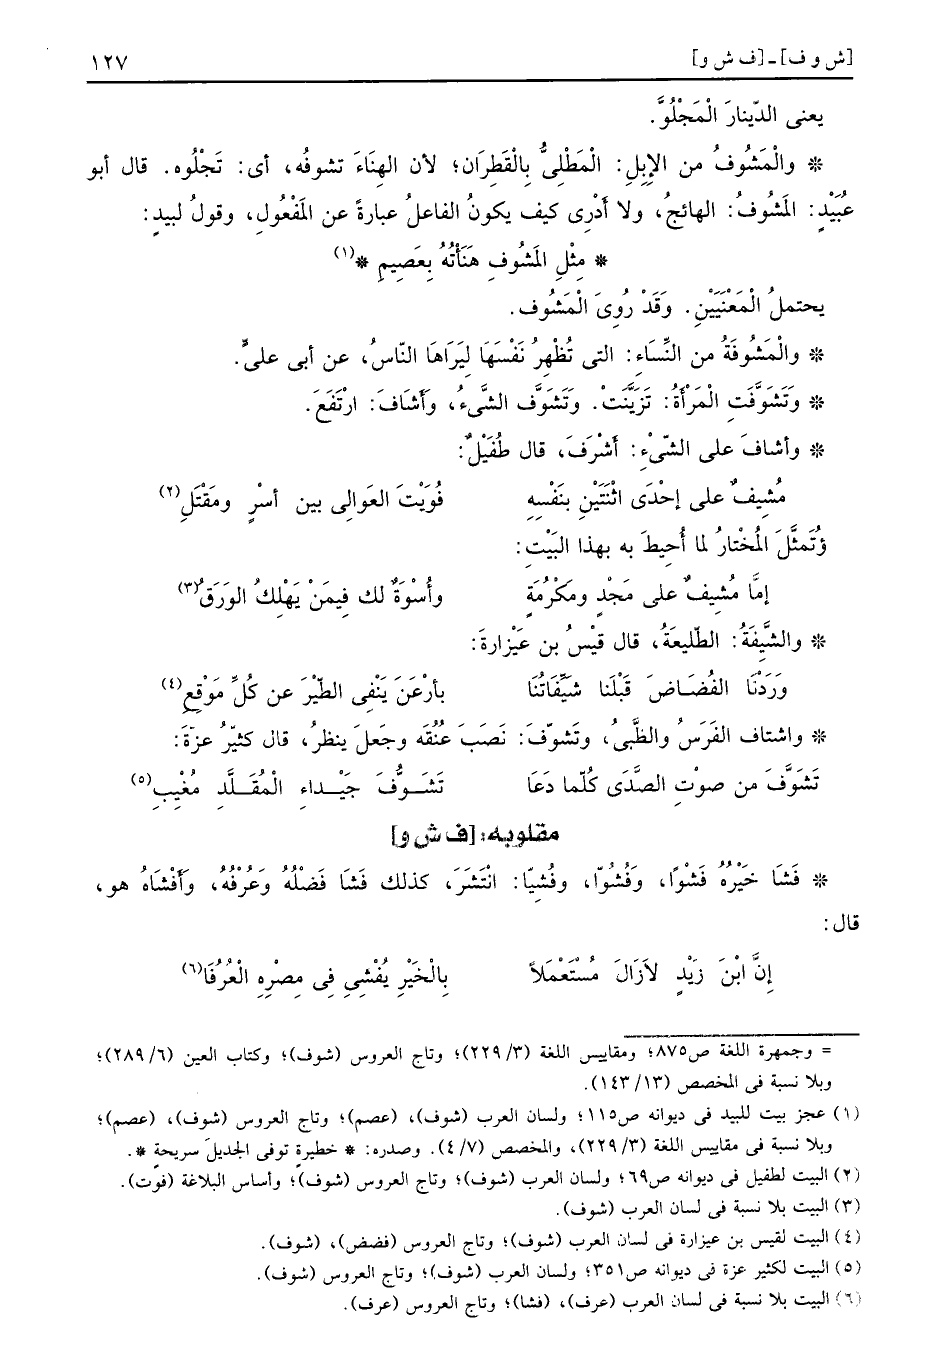 [ش و ف] - [ف ش و] ١٢٧
يعنى الدّينارَ الْمَجْلُوَّ.
* والْمَشُوفُ من الإبِلِ: الْمَطْلِىُّ بِالْقَطِرَان؛ لأن الهِنَاءَ تشوفُه، أى: تَجْلُوه. قال أبو
عُبَيْدٍ: المَشُوفُ: الهائجُ، ولا أدْرِى كيف يكونُ الفاعلُ عبارةً عن المَفْعُول، وقولُ لبيدٍ:
* مِثْلِ المَشُوفِ هَنَأْتُهُ بِعَصِيمِ *(١)
يحتملُ الْمَعْنَيَيْنِ. وَقَدْ رُوِىَ الْمَشُوف.
* والْمَشُوفَةُ من النِّسَاءِ: التى تُظْهِرُ نَفْسَهَا لِيَرَاهَا النّاسُ، عن أبى علىٍّ.
* وتَشَوَّفَتِ الْمَرْأةُ: تَزَيَّنَتْ. وتَشَوَّف الشَّىءُ، وأَشَافَ: ارْتَفَعَ.
* وأشافَ على الشّىْءِ: أَشْرَفَ، قال طُفَيْلٌ:
مُشِيفٌ على إحْدَى اثْنَتَيْنِ بنَفْسِهِ فُوَيْتَ العَوالِى بين أسْرٍ ومَقْتَلِ(٢)
وُتَمثَّلَ المُخْتارُ لما أُحيطَ به بهذا البَيْتِ:
إمَّا مُشِيفٌ على مَجْدٍ ومَكْرُمَةٍ وأُسْوَةٌ لك فِيمَنْ يَهْلِكُ الوَرَقُ(٣)
* والشَّيِّفَةُ: الطّليعَةُ، قال قَيْسُ بن عَيْزارةَ:
وَرَدْنَا الفُضَاضَ قَبْلَنا شَيِّفَاتُنَا بأرْعَنَ يَنْفِى الطّيْرَ عن كُلِّ مَوْقِعِ(٤)
* واشتاف الفَرَسُ والظَّبىُ، وتَشوّفَ: نَصَبَ عُنُقَه وجَعلَ ينظرُ، قال كثيّرُ عزةَ:
تَشَوَّفَ من صوْتِ الصَّدَى كُلّما دَعَا تَشَــوُّفَ جَيْــداءِ الْمُقَــلَّدِ مُغْيِبِ(٥)
مقلوبه: [ف ش و]
* فَشَا خَيْرُه فَشْوًا، وَفُشُوّا، وفُشِيّا: انْتَشَرَ، كذلك فَشَا فَضْلُهُ وَعُرْفُهُ، وأَفْشَاهُ هو،
قال:
إنَّ ابْنَ زَيْدٍ لاَزَالَ مُسْتَعْمَلاً بِالْخَيْرِ يُفْشِىِ فِى مِصْرِهِ الْعُرُفَا(٦)
= وجمهرة اللغة ص٨٧٥؛ ومقاييس اللغة (٣/ ٢٢٩)؛ وتاج العروس (شوف)؛ وكتاب العين (٦/ ٢٨٩)؛
وبلا نسبة فى المخصص (١٣/ ١٤٣).
(١) عجز بيت للبيد فى ديوانه ص١١٥؛ ولسان العرب (شوف)، (عصم)؛ وتاج العروس (شوف)، (عصم)؛
وبلا نسبة فى مقاييس اللغة (٣/ ٢٢٩)، والمخصص (٧/ ٤). وصدره: * خطيرةٍ توفى الجديلَ سريحةٍ *.
(٢) البيت لطفيل فى ديوانه ص٦٩؛ ولسان العرب (شوف)؛ وتاج العروس (شوف)؛ وأساس البلاغة (فوت).
(٣) البيت بلا نسبة فى لسان العرب (شوف).
(٤) البيت لقيس بن عيزارة فى لسان العرب (شوف)؛ وتاج العروس (فضض)، (شوف).
(٥) البيت لكثير عزة فى ديوانه ص٣٥١؛ ولسان العرب (شوف)؛ وتاج العروس (شوف).
(٦) البيت بلا نسبة فى لسان العرب (عرف)، (فشا)؛ وتاج العروس (عرف).